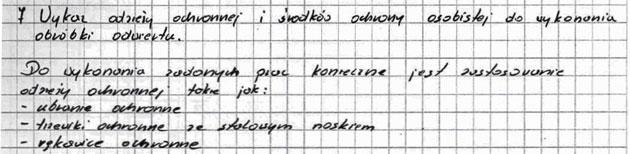 7 Wykaz odzieży ochronnej i środków ochrony osobistej do wykonania
obróbki odwiertu.
Do wykonania zadanych prac konieczne jest zastosowanie
odzieży ochronnej takie jak:
- ubranie ochronne
- trzewiki ochronne ze stalowym noskiem
- rękawice ochronne